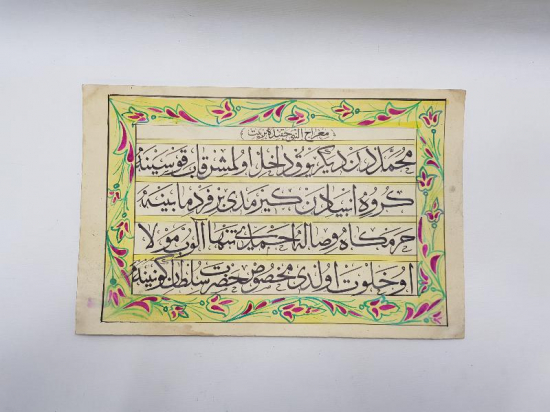 معراج النبی حقنده بیت
محمددن دیگر یوق داخل اولمش قاب قوسینه
کروه انبیادن کیرمدی بر فرد مابینه
حرمکاه وصاله احمدی تنها آلوب مولا
او خلوت اولدی مخصوص حضرت سلطان کونینه